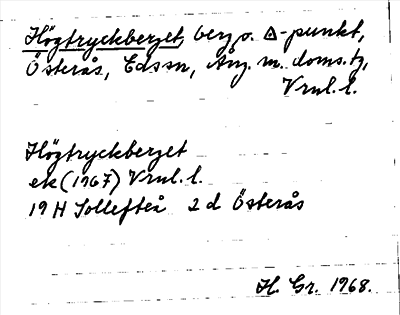 Högtryckberget, berg o. △-punkt,
Österås, Edssn, Ång. m. doms.tg,
Vrnl. l.
Högtryckberget
ek (1967) Vrnl. l.
19 H Sollefteå 2 d Österås
H. Gr. 1968.